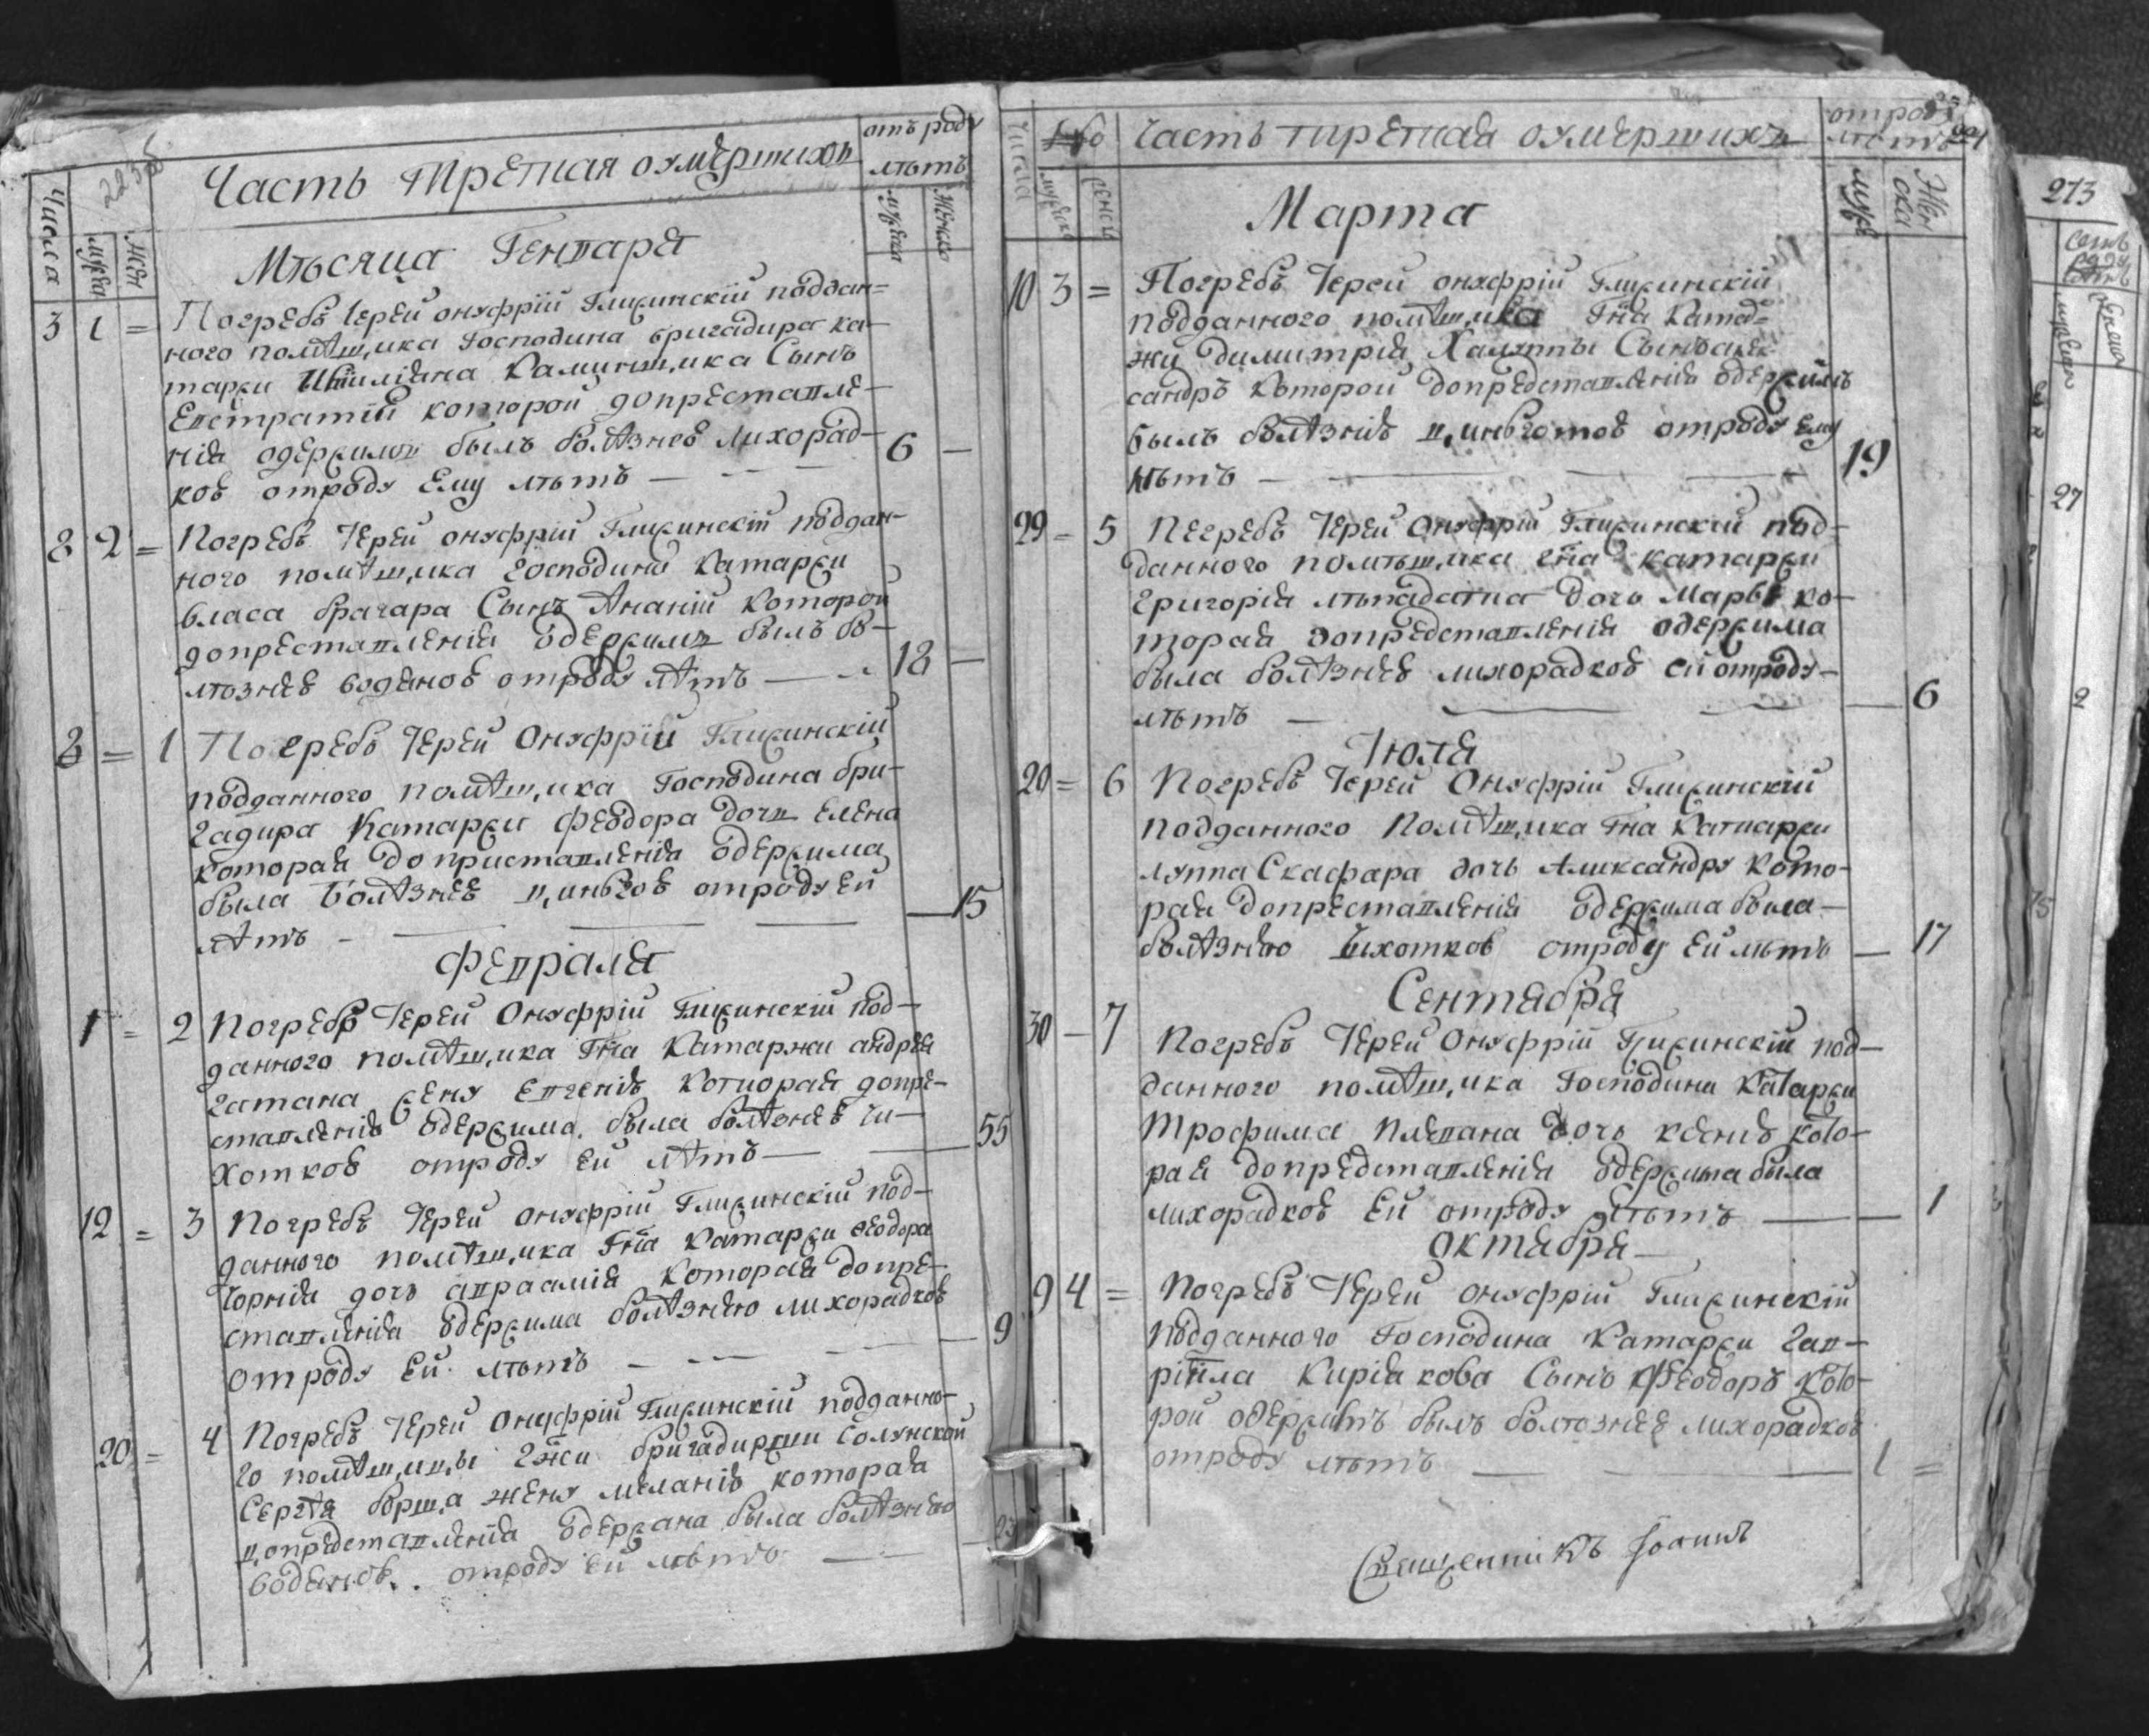 223 об
Часть третая оумершихъ
отъ роду
лѣтъ
Числа
мужеска
жен
мужеска
женска
Мѣсяца Генваря
3 1 = Погребъ Іерей онуфрїй Глижинскїй поддан=
ного помѣщика Господина бригадира ка-
таржи Каминщика Сынъ
Евстратїй которой допреставле-
нїя одержимъ былъ болѣзнею лихорад-
кою отроду Ему лѣтъ — 6 —
8 2 = Погребъ Іерей онуфрїй Глижинскїй поддан-
ного помѣщика господина катаржи
власа брагара Сынъ Ананїй которой
допреставленїя одержимъ былъ бо-
лѣзнею водяною отроду лѣтъ — 18 —
8 = 1 Погребъ Іерей Онуфрїй Глижинскїй
подданного помѣщика Господина бри-
гадира Катаржи Феодора дочь Елена
которая до приставленїя одержима
была болѣзнею цынгою отроду Ей
лѣтъ — 15
Февраля
1 = 2 Погребъ Іерей Онуфрїй Глижинскїй под-
данного помѣщика Гна Катаржи андрея
гатана жену Евгенїю которая допре-
ставленїя одержима была болѣзнею чи-
хоткою отроду Ей лѣтъ — 55
12 = 3 Погребъ Іерей Онуфрїй Глижинскїй под-
данного помѣщика Гна Катаржи Феодора
дочь которая допре-
ставленїя одержима болѣзнїю лихорадкою
отроду Ей лѣтъ — 9
20 = 4 Погребъ Іерей Онуфрїй Глижинскїй подданно-
го помѣщицы Гжи бригадирши
Сергѣя борща жену меланїю которая
допредставленїя одержана была болѣзнїю
водяною отроду Ей лѣтъ —
Часть третая оумершихъ
отроду
лѣтъ
Числа
мужеска
женска
муже
Жен
ска
Марта
10 3 = Погребъ Іерей онуфрїй Глижинскїй
подданного помѣщика Гна Катар=
жи димитрїя Халуппы Сынъ алек-
сандръ которой допредставленїя одержимъ
былъ болѣзнїю цинготою отроду Ему
лѣтъ — 19
29 = 5 Пегребъ Іерей Онуфрїй Глижинскїй под-
данного помѣщика гна катаржи
григорїя дочь Марью ко-
торая допредставленїя одержима
была болѣзнею лихорадкою Ей отроду —
лѣтъ — 6
Іюля
20 = 6 Погребъ Іерей Онуфрїй Глижинскїй
подданного Помѣщика Гна Катаржи
луппа Скафара дочь Александру кото-
рая допреставленїя одержима была —
болѣзнїю чихоткою отроду Ей лѣтъ — 17
Сентября
30 — 7 Погребъ Іерей Онуфрїй Глижинскїй под-
данного помѣщика Господина Катаржи
Трофима Плевана дочь ксенїю кото-
рая допредставленїя одержима была
лихорадкою Ей отроду лѣтъ — 1
октября
9 4 = Погребъ Іерей онуфрїй Глижинскїй
подданного Господина Катаржи Гав-
рїила Кирїякова Сынъ Феодоръ кото-
рой одержимъ былъ болѣзнею лихорадкою
отроду лѣтъ — 1 =
Священникъ Іоаннъ
273
27
2